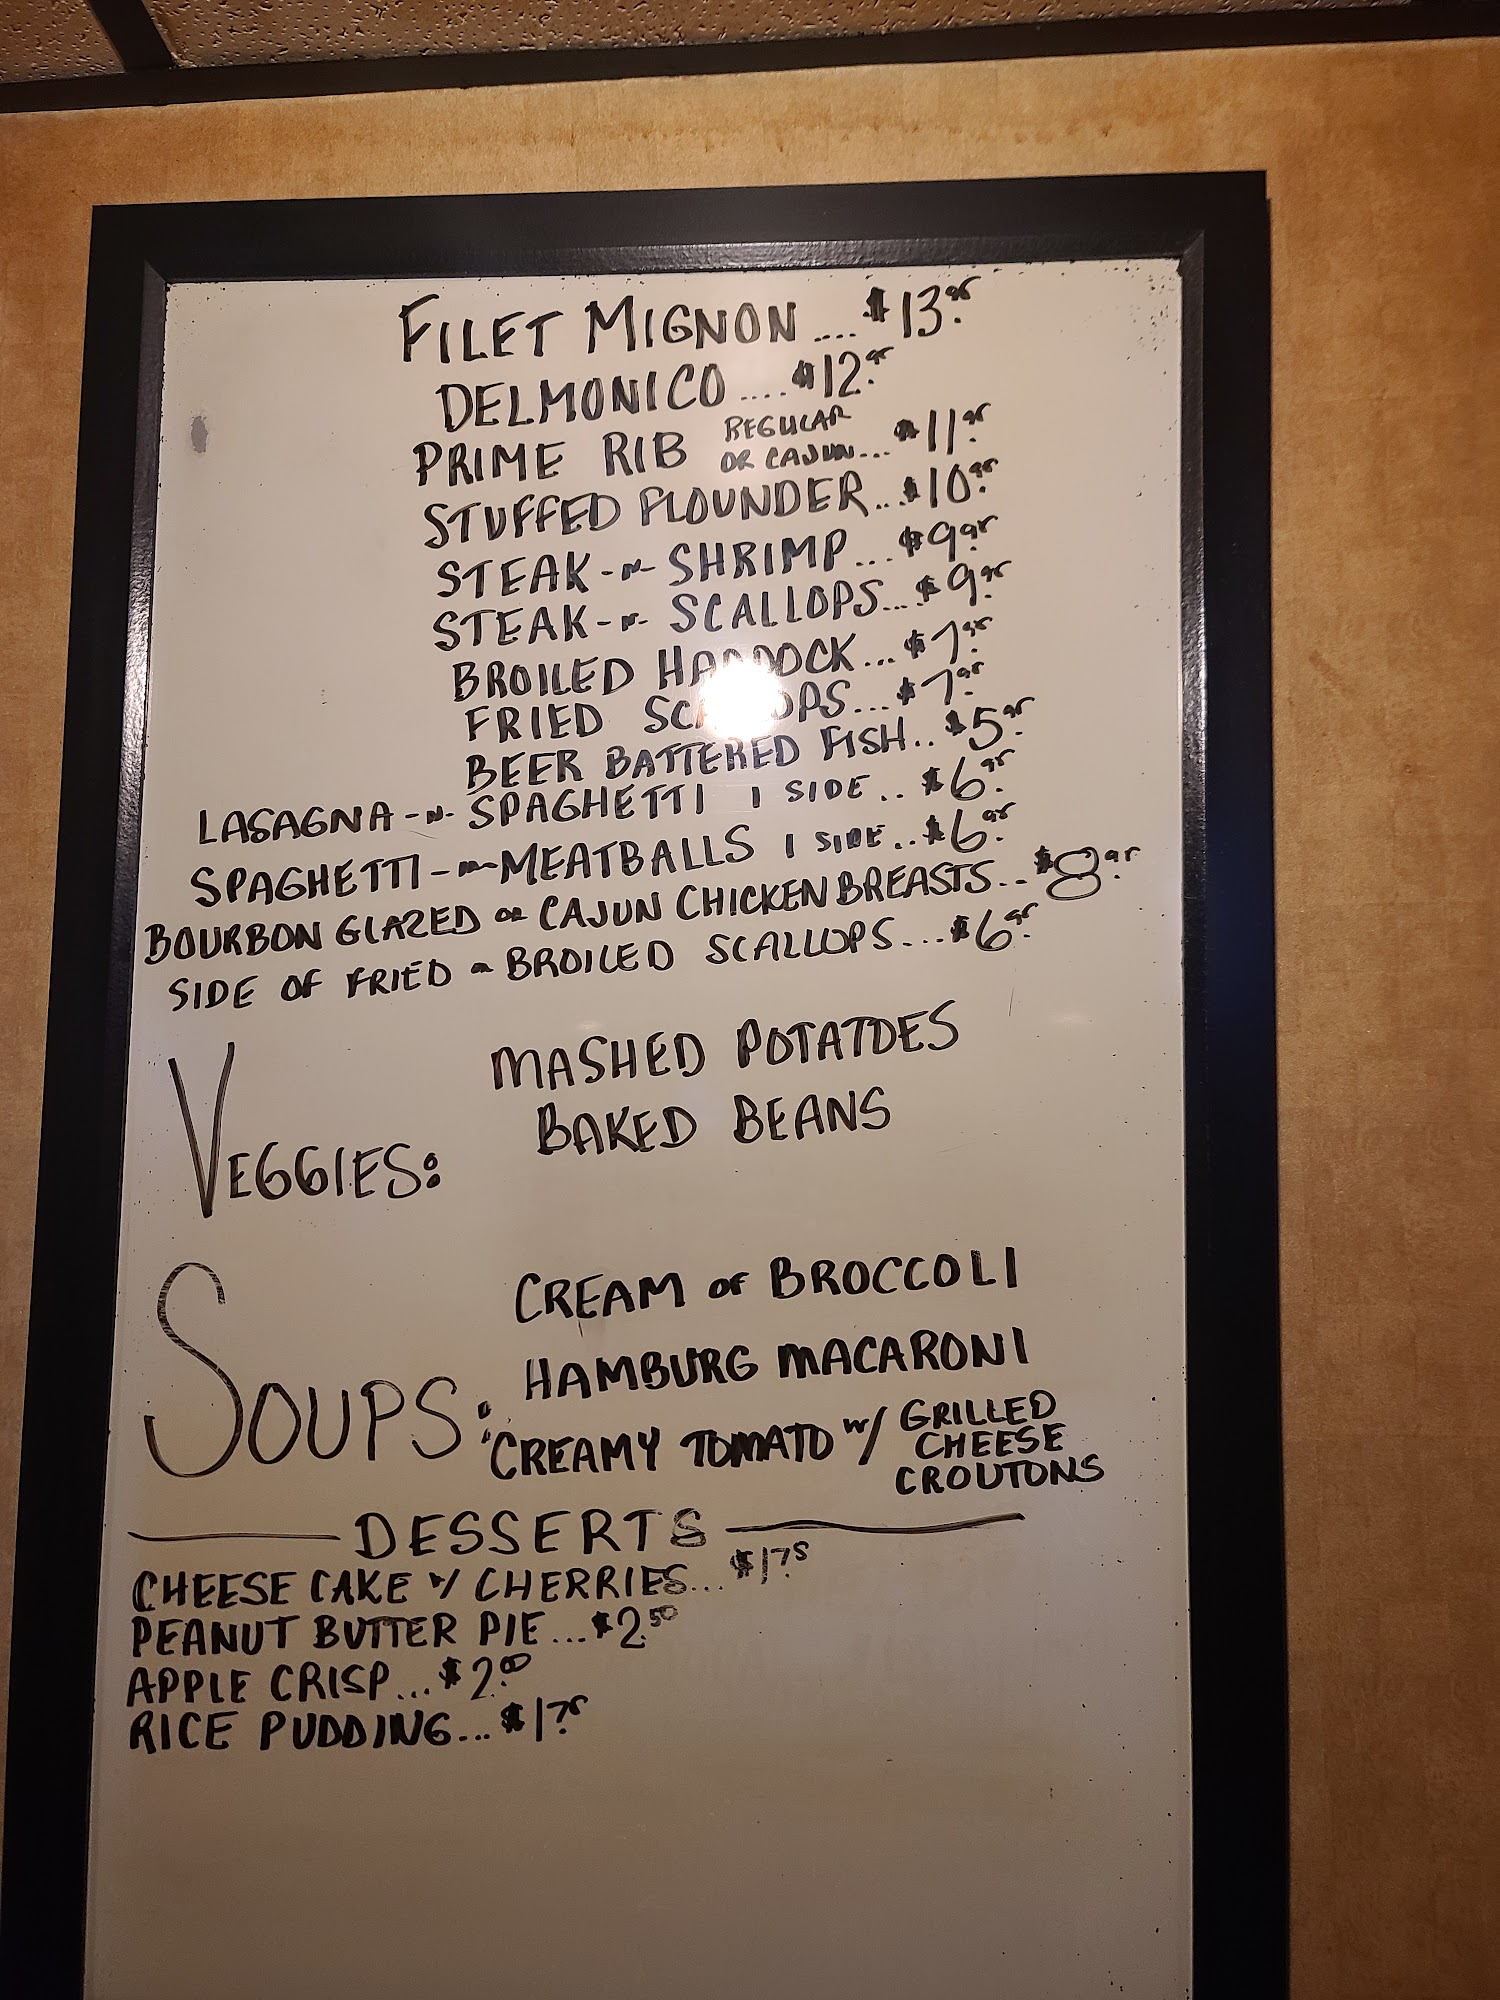 FILET MIGNON .... $13.95
DELMONICO .... $12.95
PRIME RIB REGULAR OR CAJUN... $11.95
STUFFED FLOUNDER... $10.95
STEAK-N-SHRIMP... $9.95
STEAK-N-SCALLOPS... $9.95
BROILED HADDOCK... $7.95
FRIED SCALLOPS... $7.95
BEER BATTERED FISH.. $5.95
LASAGNA-N-SPAGHETTI 1 SIDE.. $6.95
SPAGHETTI-N-MEATBALLS 1 SIDE.. $6.95
BOURBON GLAZED OR CAJUN CHICKEN BREASTS... $8.95
SIDE OF FRIED OR BROILED SCALLOPS... $6.95
VEGGIES:
MASHED POTATOES
BAKED BEANS
SOUPS:
CREAM OF BROCCOLI
HAMBURG MACARONI
CREAMY TOMATO W/ GRILLED CHEESE CROUTONS
DESSERTS
CHEESE CAKE W/ CHERRIES... $1.75
PEANUT BUTTER PIE... $2.50
APPLE CRISP... $2.00
RICE PUDDING... $1.75